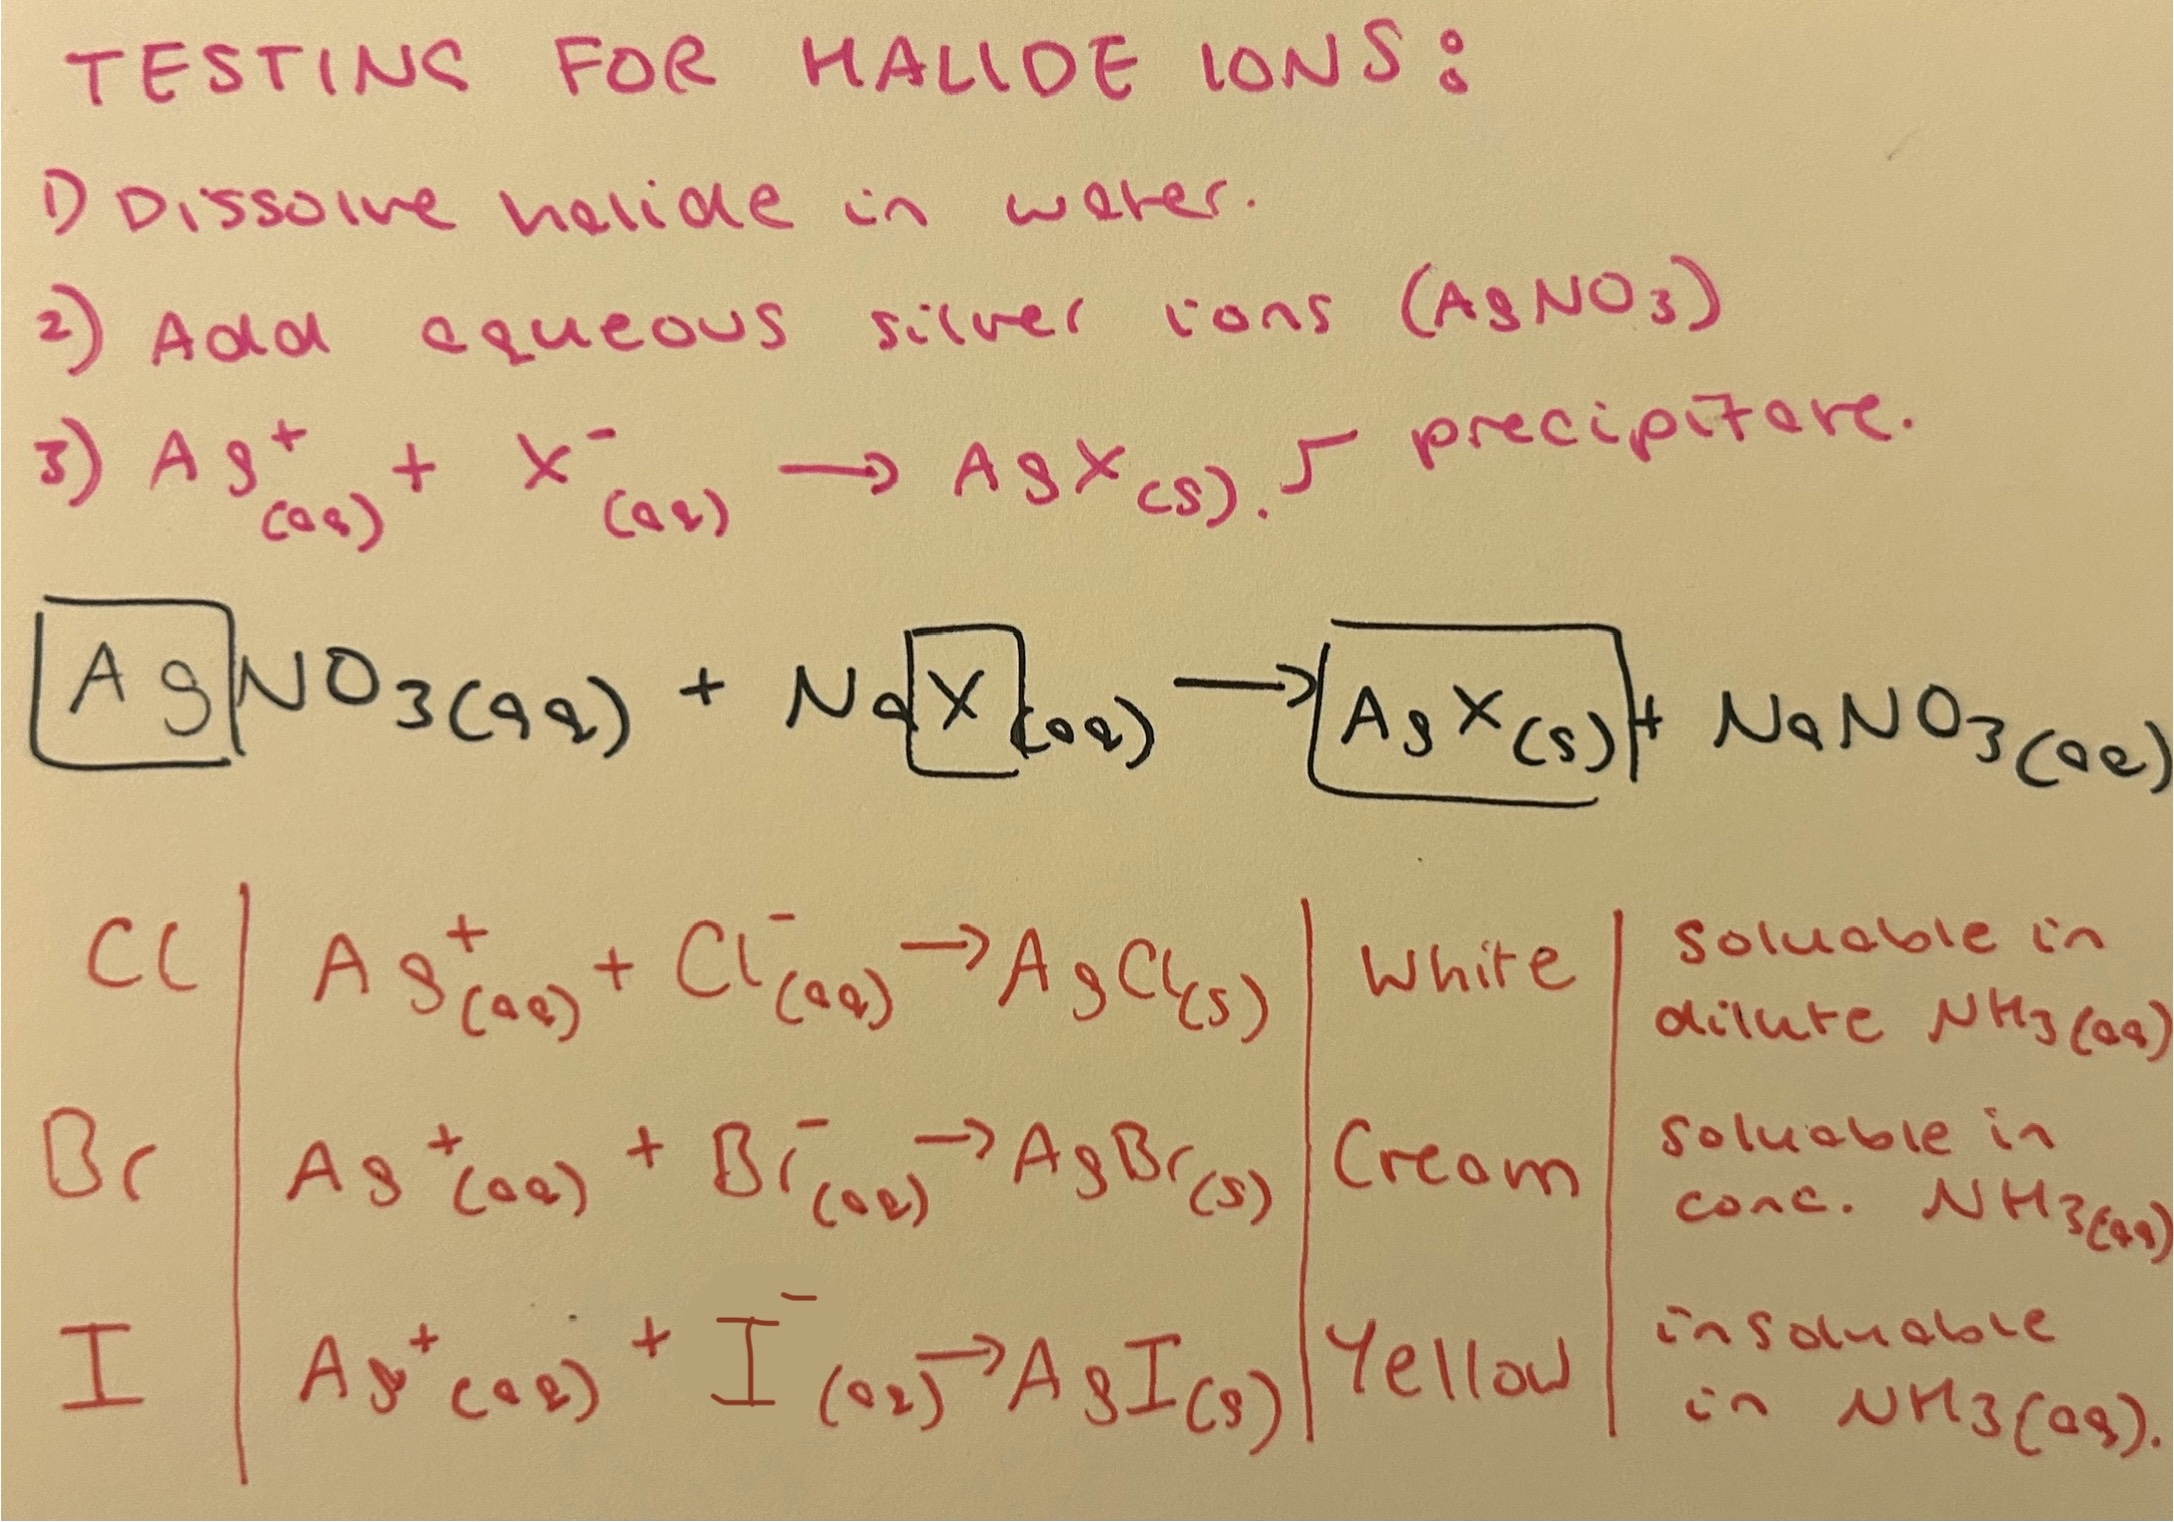 TESTING FOR HALIDE IONS:
1) Dissolve halide in water.
2) Add aqueous silver ions (AgNO3)
3) Ag+(aq) + X-(aq) → AgX(s). precipitate.
AgNO3(aq) + NaX(aq) → AgX(s) + NaNO3(aq)
Cl | Ag+(aq) + Cl-(aq) → AgCl(s) | White | soluable in dilute NH3(aq)
Br | Ag+(aq) + Br-(aq) → AgBr(s) | Cream | soluable in conc. NH3(aq)
I | Ag+(aq) + I-(aq) → AgI(s) | Yellow | insoluable in NH3(aq).